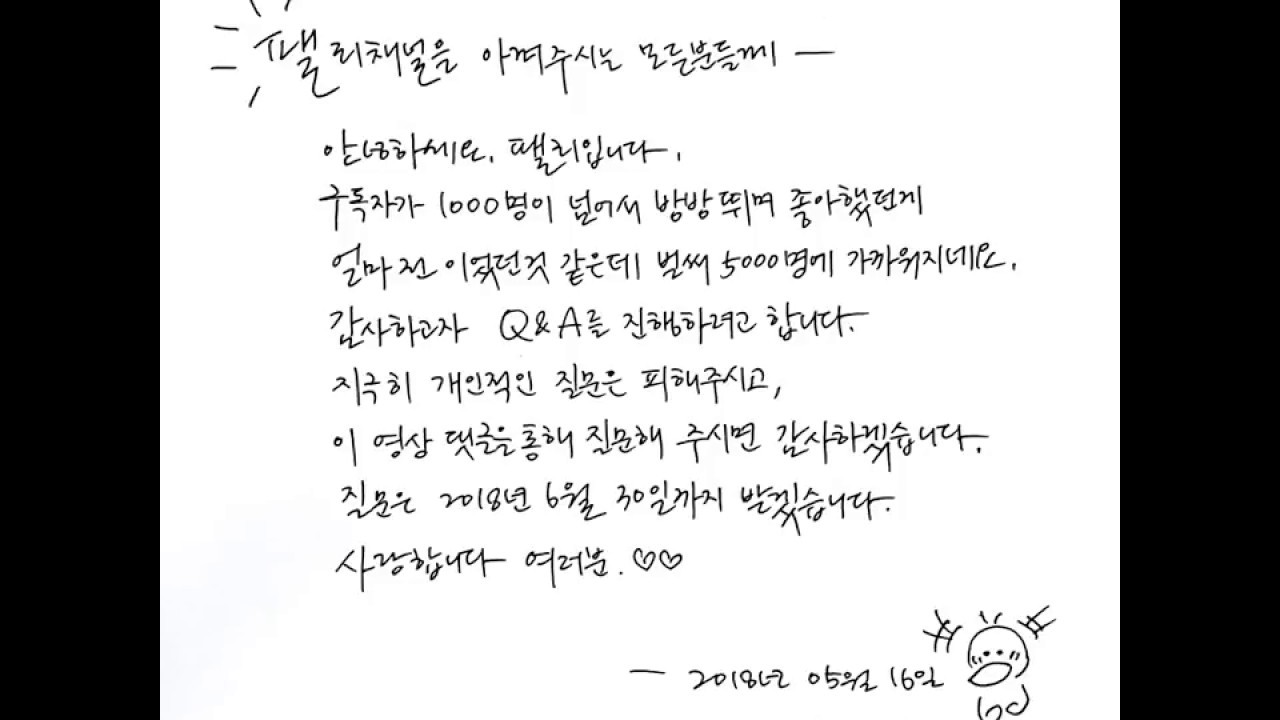 팰리채널을 아껴주시는 모든분들께 —
안녕하세요. 팰리입니다.
구독자가 1000명이 넘어서 방방 뛰며 좋아했던게
얼마전 이었던것 같은데 벌써 5000명에 가까워지네요.
감사하고자 Q&A를 진행하려고 합니다.
지극히 개인적인 질문은 피해주시고,
이 영상 댓글을통해 질문해 주시면 감사하겠습니다.
질문은 2018년 6월 30일까지 받겠습니다.
사랑합니다 여러분. ♡♡
— 2018년 05월 16일